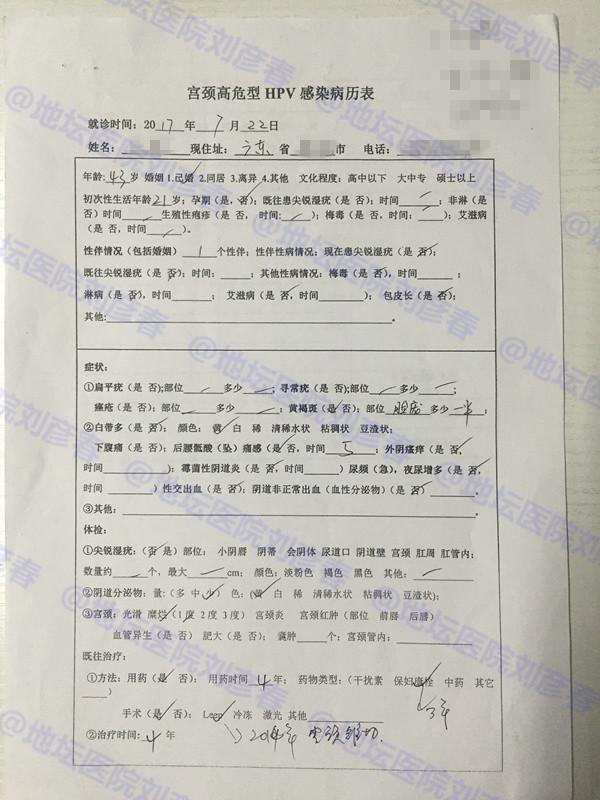 宫颈高危型 HPV 感染病历表
就诊时间：2017 年 7 月 22 日
姓名： 现住址：广东 省 市 电话：
年龄：43 岁 婚姻 1.已婚 2.同居 3.离异 4.其他 文化程度：高中以下 大中专 硕士以上
初次性生活年龄 21 岁；孕期（是，否）；既往患尖锐湿疣（是 否）；时间 ；非淋（是
否）时间 生殖性疱疹（是 否， 时间： ）；梅毒（是 否，时间： ）；艾滋病
（是 否，时间 ）。
性伴情况（包括婚姻） 1 个性伴；性伴性病情况：现在患尖锐湿疣（是 否）；
既往尖锐湿疣（是 否）；时间： ；其他性病情况：梅毒（是 否），时间 ；
淋病（是 否），时间 ； 艾滋病（是 否，时间 ）； 包皮长（是 否）；
其他： 。
症状：
①扁平疣（是 否）;部位 多少 ； 寻常疣（是 否）;部位 多少 ；
痤疮（是 否）；部位 多少 ； 黄褐斑（是 否）；部位 多少 一半 ；
②白带多（是 否）； 颜色： 黄 白 稀 清稀水状 粘稠状 豆渣状；
下腹痛（是 否）；后腰骶酸（坠）痛感（是 否，时间 5 ； 外阴瘙痒（是 否，
时间 ）；霉菌性阴道炎（是 否，时间 ）尿频（急），夜尿增多（是 否，
时间 ）性交出血（是 否）；阴道非正常出血（血性分泌物）（是 否） 。
③其他： 。
体检：
①尖锐湿疣：（否 是）部位： 小阴唇 阴蒂 会阴体 尿道口 阴道壁 宫颈 肛周 肛管内；
数量约 个，最大 cm； 颜色：淡粉色 褐色 黑色 其他：
②阴道分泌物：量：（多 中 少） 色：（黄 白 稀 清稀水状 粘稠状 豆渣状）；
③宫颈：光滑 糜烂（1 度 2 度 3 度） 宫颈炎 宫颈红肿（部位 前唇 后唇）
血管异生（是 否） 肥大（是 否）； 囊肿 个；宫颈管内：
既往治疗：
①方法：用药（是 否）； 用药时间 4 年； 药物类型：（干扰素 保妇康栓 中药 其它
）
3年
手术（是 否）； Leep 冷冻 激光 其他
②治疗时间：4 年 2014年 宫颈锥切.
@地坛医院刘彦春